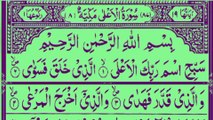 سُوْرَةُ الْاَعْلٰى مَكِّيَّةٌ
بِسْمِ اللّٰهِ الرَّحْمٰنِ الرَّحِيْمِ
سَبِّحِ اسْمَ رَبِّكَ الْاَعْلَى ۙ ۱ الَّذِيْ خَلَقَ فَسَوّٰى ۙ ۲
وَالَّذِيْ قَدَّرَ فَهَدٰى ۙ ۳ وَالَّذِيْۤ اَخْرَجَ الْمَرْعٰى ۙ ۴